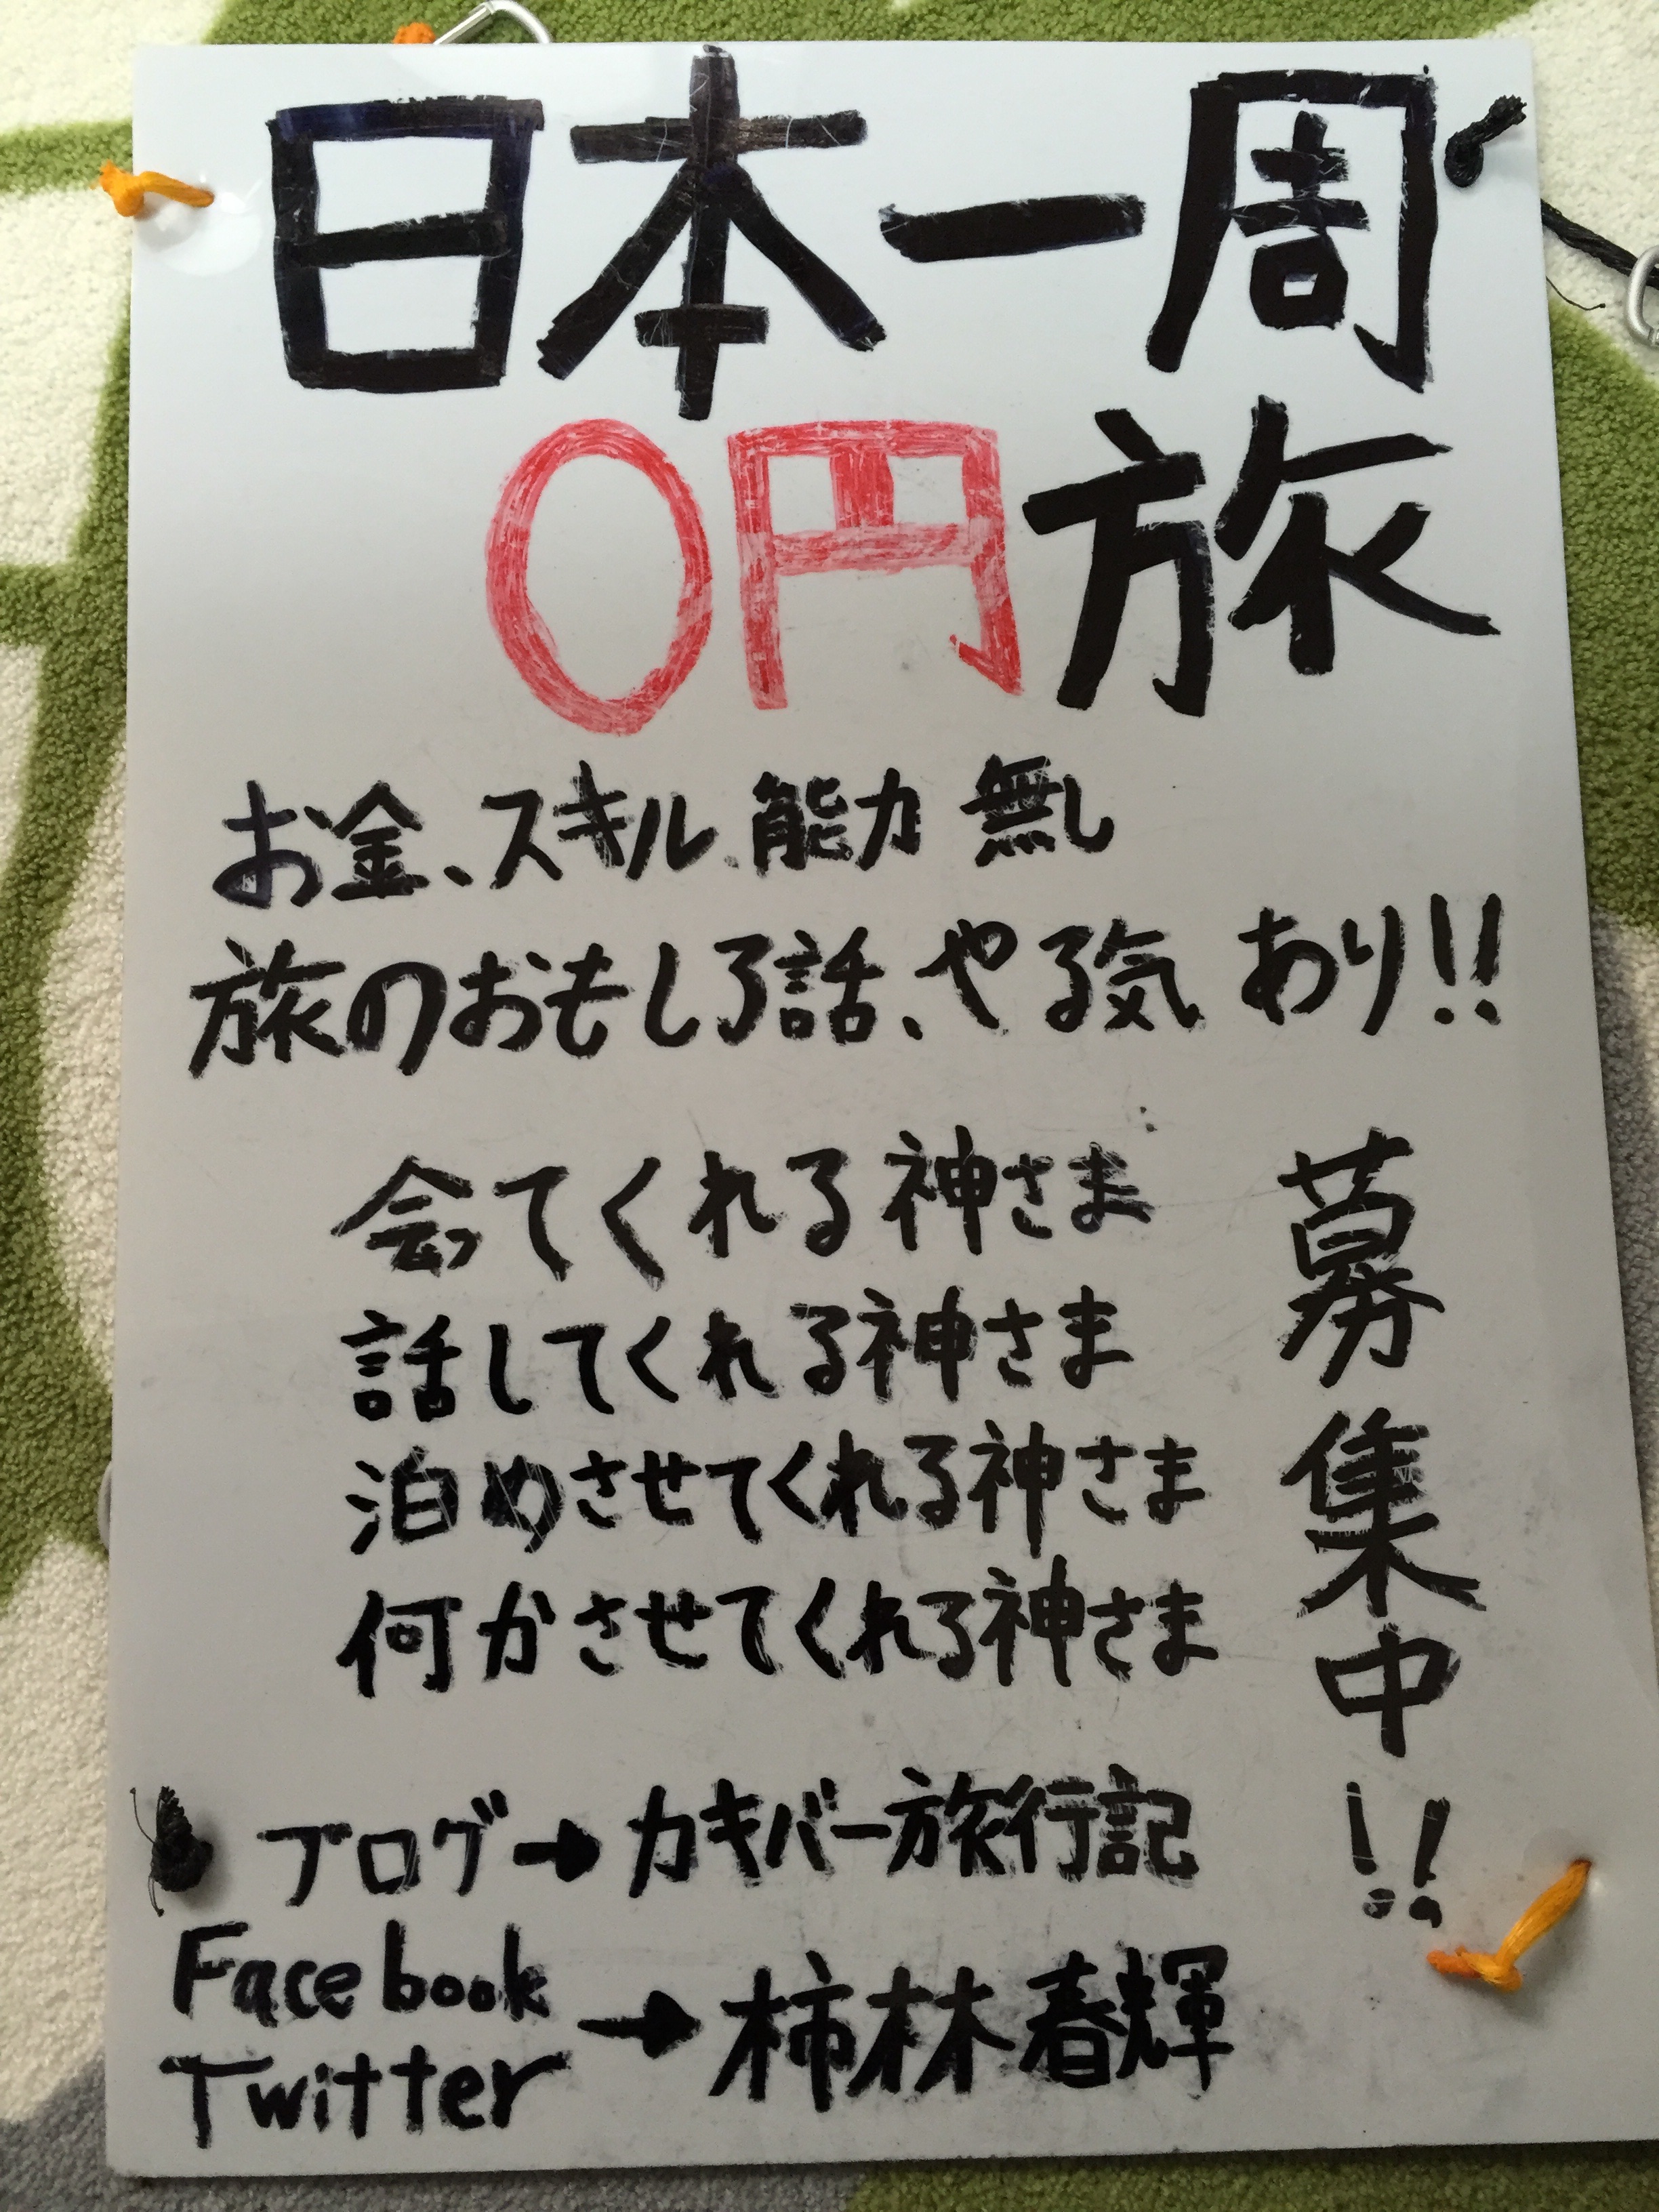 日本一周
0円旅
お金、スキル、能力 無し
旅のおもしろ話、やる気 あり!!
会ってくれる神さま
話してくれる神さま
泊めさせてくれる神さま
何かさせてくれる神さま
募集中!!
ブログ→カキバー旅行記
Facebook
Twitter
→柿林春輝